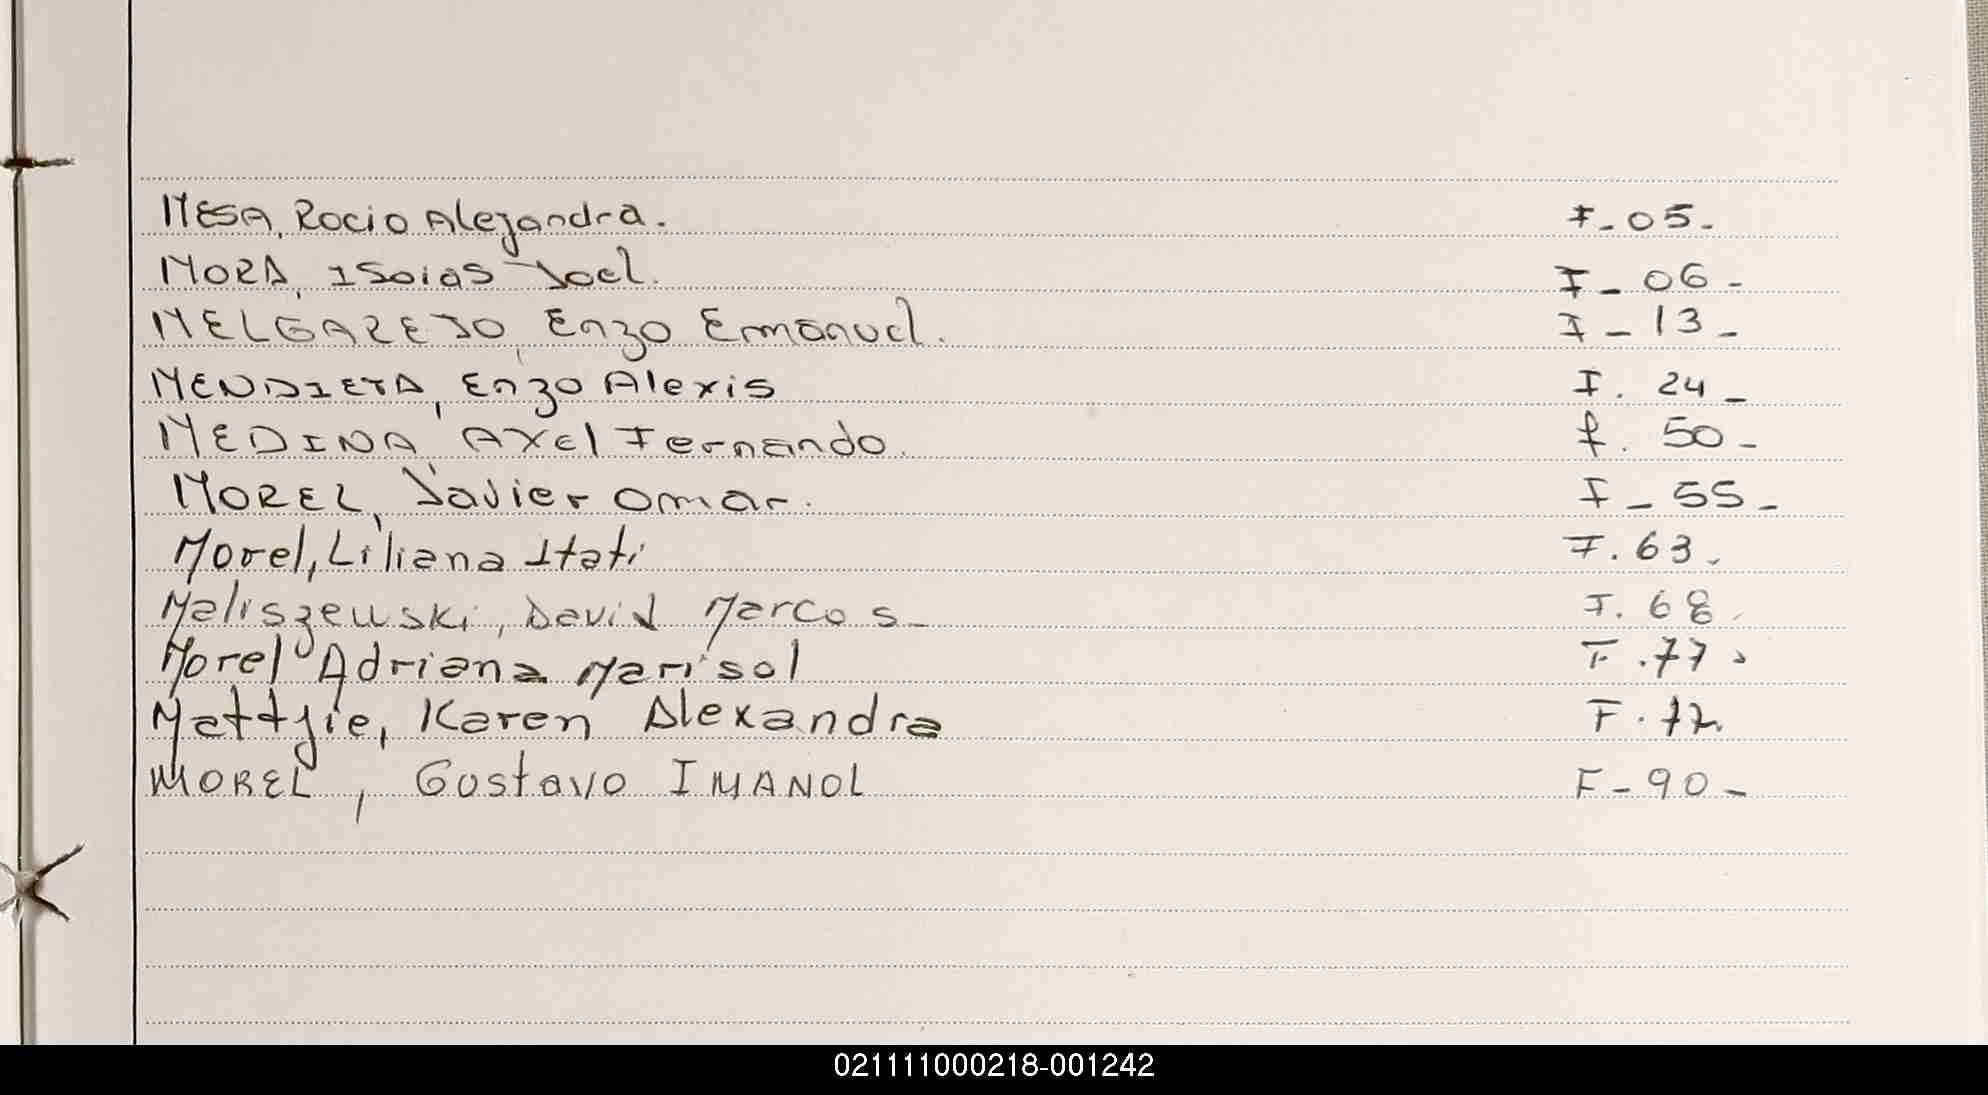 MESA, Rocio Alejandra. F-05-
MORA, Isaias Joel. F-06-
MELGAREJO, Enzo Emanuel. F-13-
MENDIETA, Enzo Alexis F. 24-
MEDINA, Axel Fernando. f. 50-
MOREL, Javier omar. F-55-
Morel, Liliana Itati F. 63.
Maliszewski, David Marcos- F. 68.
Morel, Adriana Marisol F. 77.
Mattjie, Karen Alexandra F. 77.
MOREL, Gustavo IMANOL F-90-
021111000218-001242